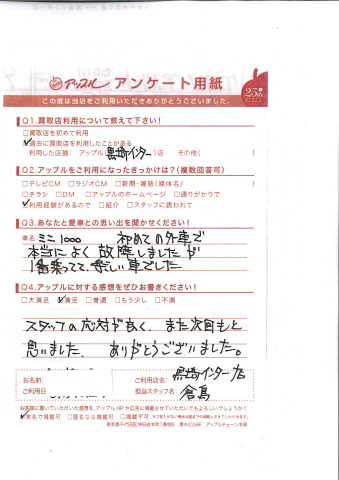 アップル アンケート用紙
25th
この度は当店をご利用いただきありがとうございました。
Q1.買取店利用について教えて下さい!
□買取店を初めて利用
☑過去に買取店を利用したことがある
利用した店舗: アップル(黒崎インター)店 その他( )
Q2.アップルをご利用になったきっかけは?(複数回答可)
□テレビCM □ラジオCM □新聞・雑誌(媒体名/ )
□チラシ □DM □アップルのホームページ □通りがかりで
☑利用経験があるので □紹介 □スタッフに誘われて
Q3.あなたと愛車との思い出を聞かせください!
車名:ミニ1000 初めての外車で
本当によく故障しましたが
1番乗ってて、楽しい車でした
Q4.アップルに対する感想をぜひお書きください!
□大満足 ☑満足 □普通 □もう少し □不満
スタッフの応対が良く、また次回もと
思いました。 ありがとうございました。
お名前:
ご利用店名: 黒崎インター店
ご利用日
担当スタッフ名: 倉高
お客様に書いていただいた感想を、アップルHPや広告に掲載させていただいてもよろしいでしょうか?
☑実名で掲載可 □匿名なら掲載可 □掲載不可
東京都千代田区神田岩本町1番地5 清水ビル8F アップルチェーン本部